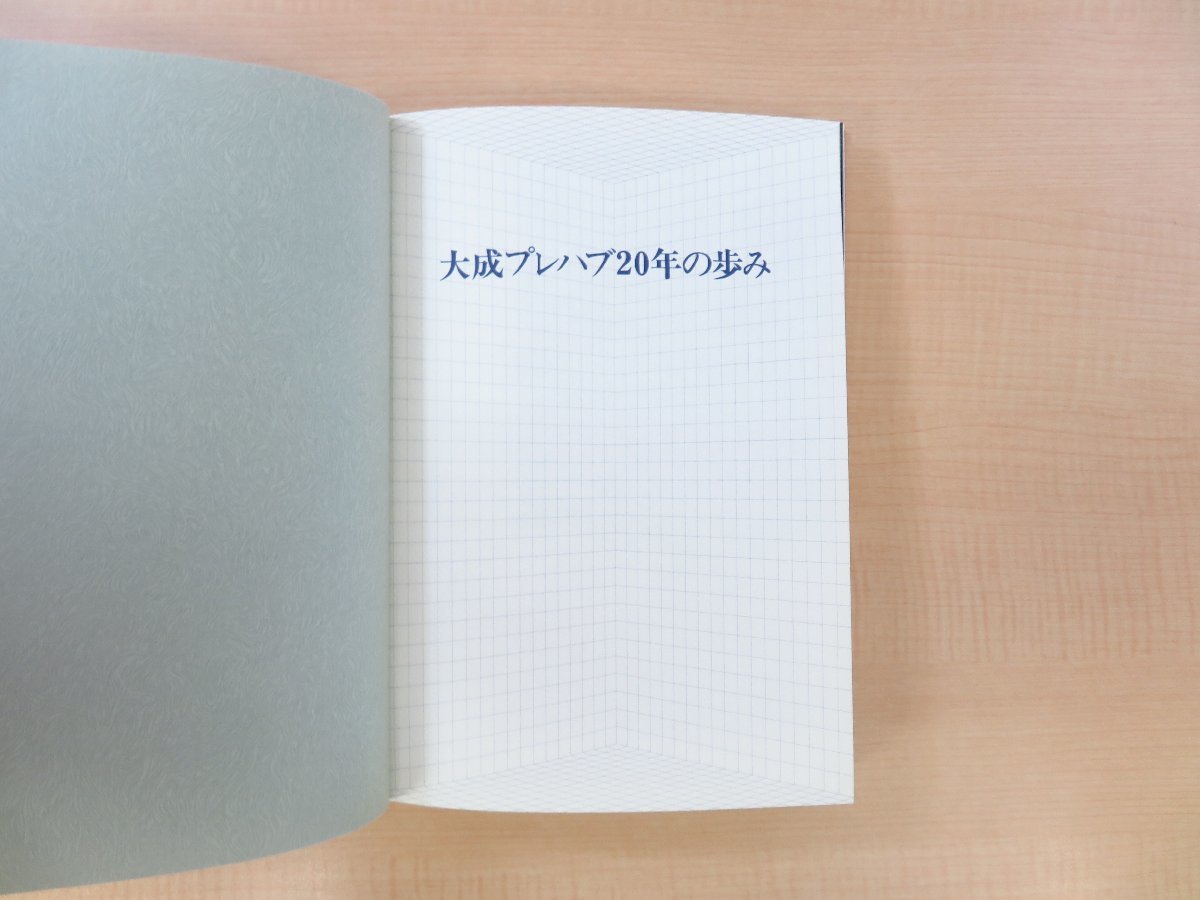 大成プレハブ20年の歩み